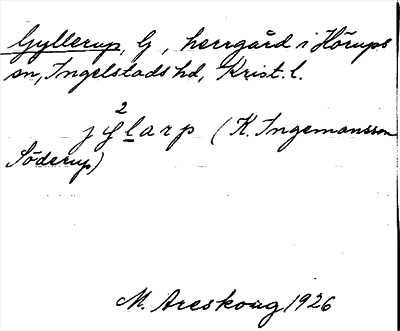 Gyllerup, G, herrgård i Hörups
sn, Ingelstads hd, Krist. l.
2
(K. Ingemansson
Söderup)
M. Areskoug 1926